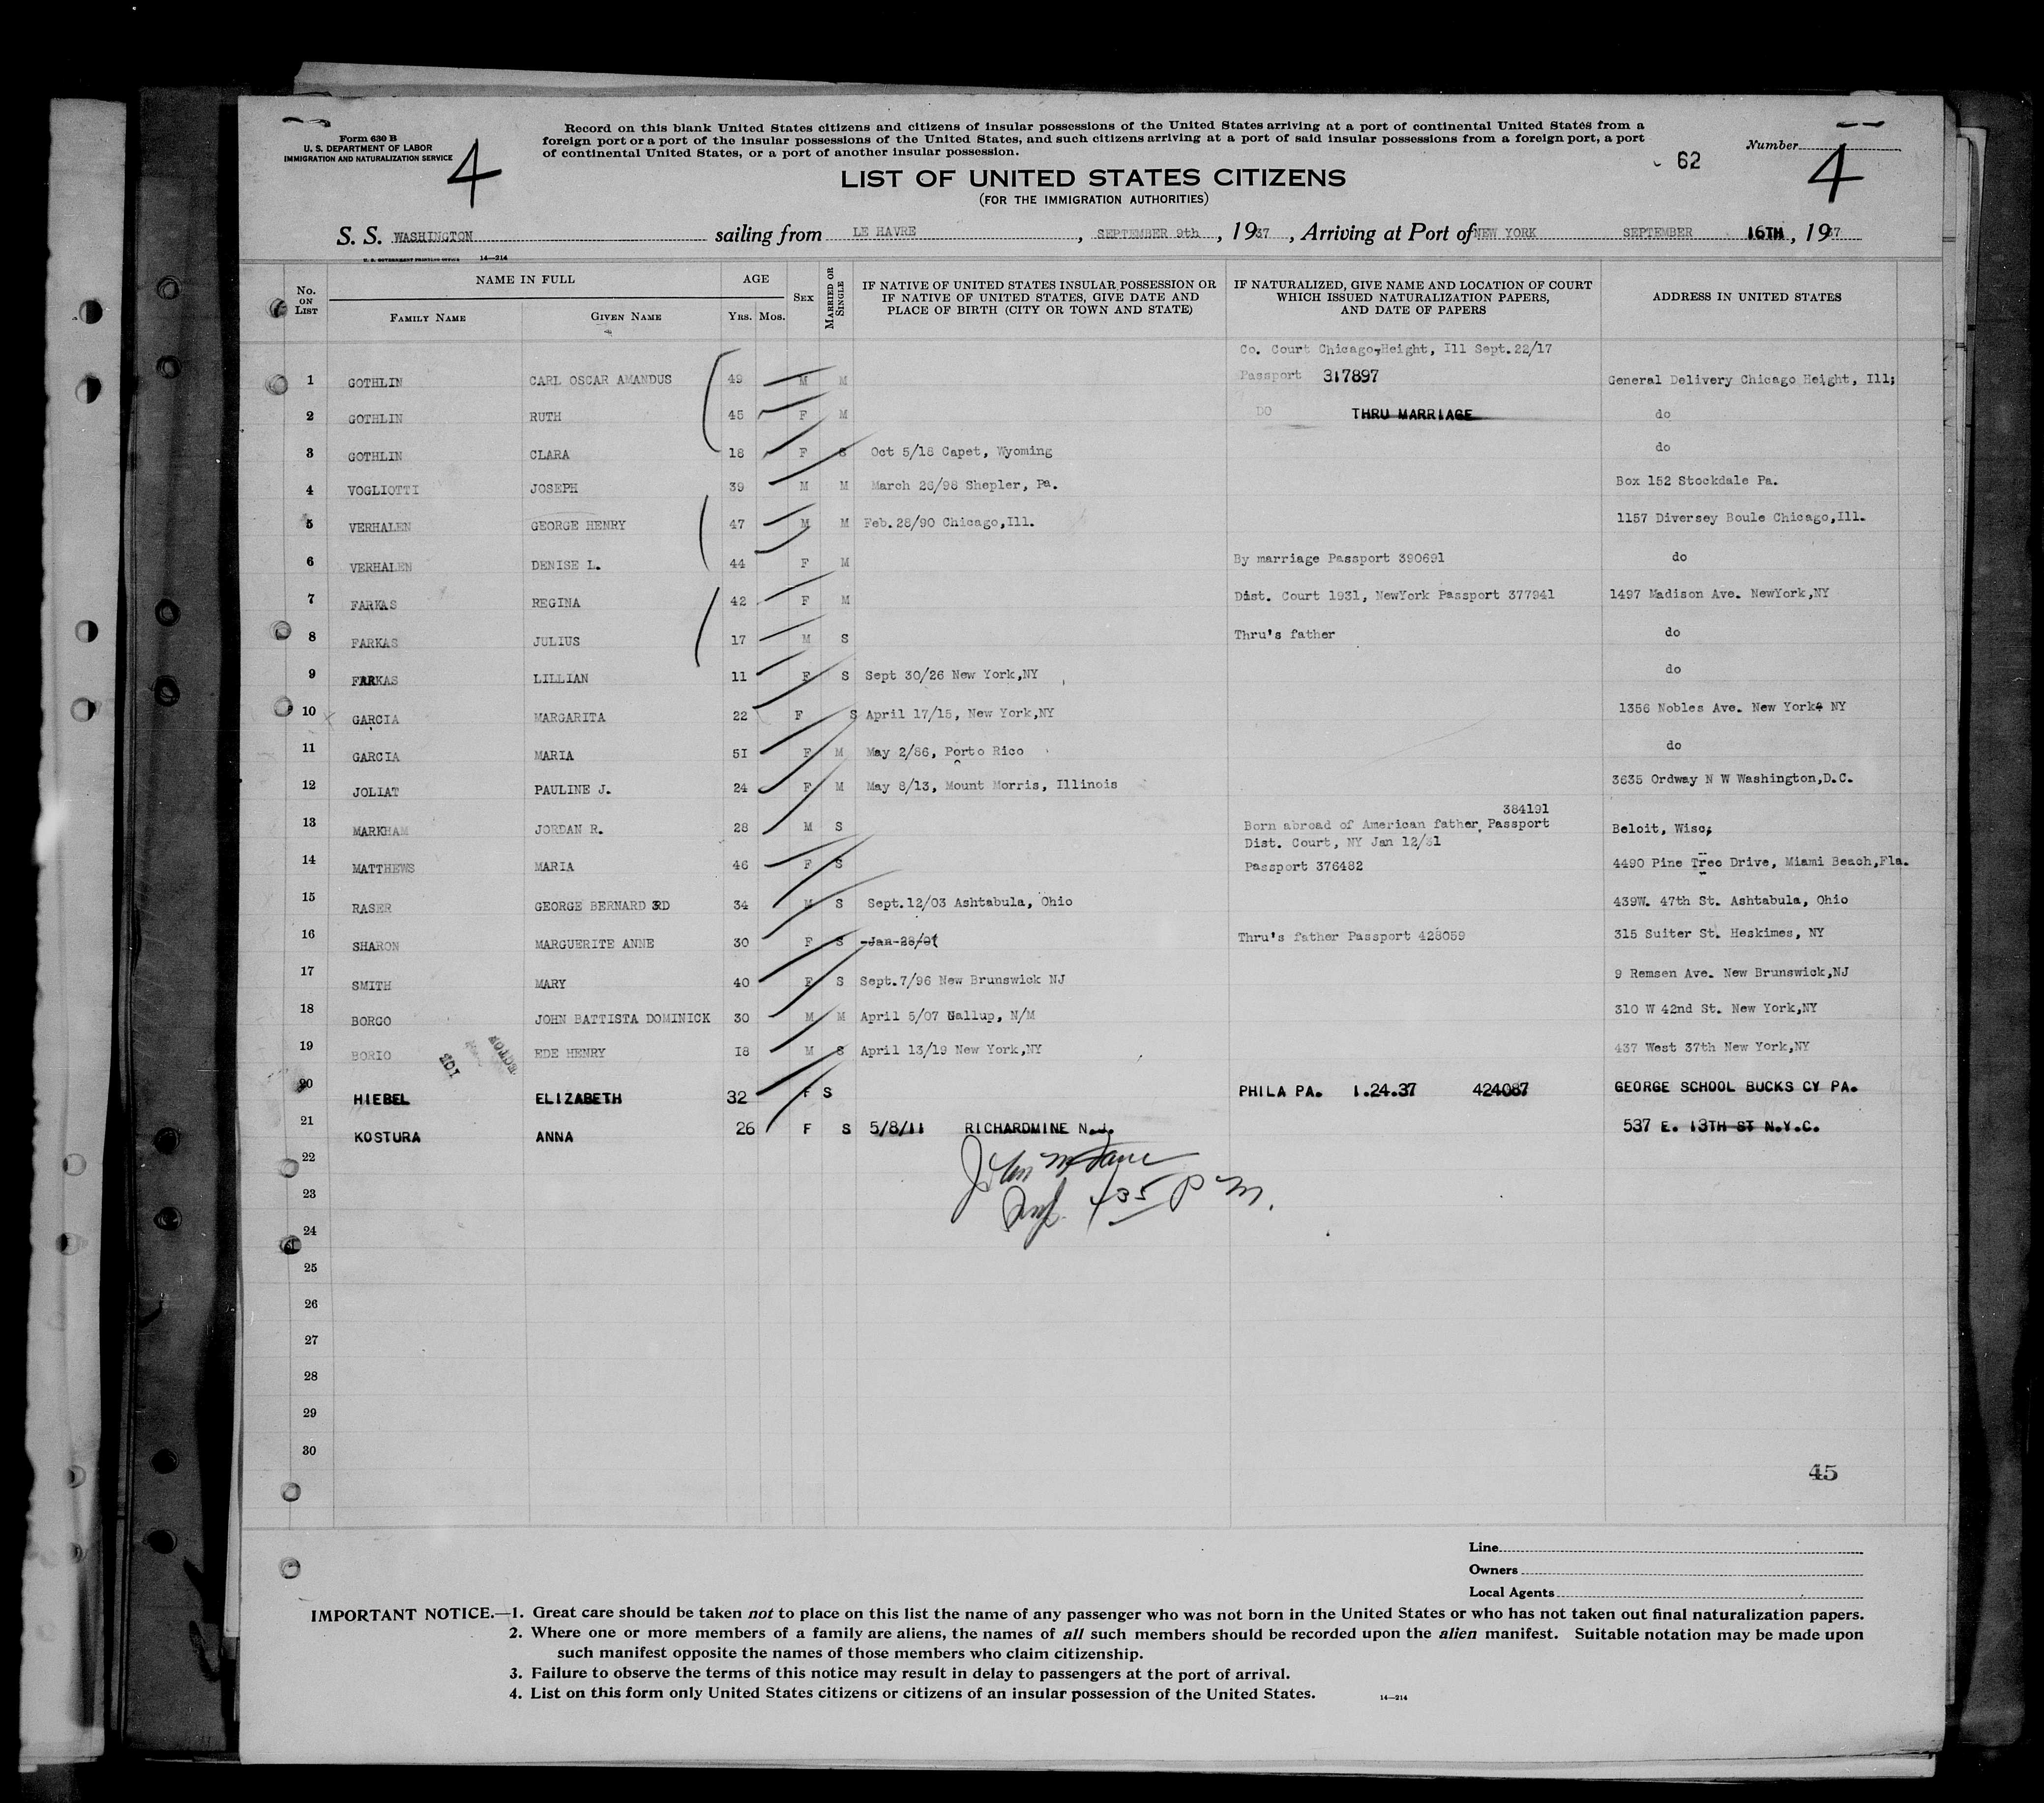 Form 630 B
U. S. DEPARTMENT OF LABOR
IMMIGRATION AND NATURALIZATION SERVICE
4
Record on this blank United States citizens and citizens of insular possessions of the United States arriving at a port of continental United States from a
foreign port or a port of the insular possessions of the United States, and such citizens arriving at a port of said insular possessions from a foreign port, a port
of continental United States, or a port of another insular possession.
62
Number
4
LIST OF UNITED STATES CITIZENS
(FOR THE IMMIGRATION AUTHORITIES)
S. S. WASHINGTON sailing from LE HAVRE, SEPTEMBER 9th, 1937, Arriving at Port of NEW YORK SEPTEMBER 16TH, 1937
U. S. GOVERNMENT PRINTING OFFICE 14—214
No. ON LIST NAME IN FULL FAMILY NAME GIVEN NAME AGE YRS. MOS. SEX MARRIED OR SINGLE
IF NATIVE OF UNITED STATES INSULAR POSSESSION OR IF NATIVE OF UNITED STATES, GIVE DATE AND PLACE OF BIRTH (CITY OR TOWN AND STATE)
IF NATURALIZED, GIVE NAME AND LOCATION OF COURT WHICH ISSUED NATURALIZATION PAPERS, AND DATE OF PAPERS
ADDRESS IN UNITED STATES
Co. Court Chicago Height, Ill Sept.22/17
1 GOTHLIN CARL OSCAR AMANDUS 49 M M Passport 317897 General Delivery Chicago Height, Ill;
2 GOTHLIN RUTH 45 F M DO THRU MARRIAGE do
3 GOTHLIN CLARA 18 F S Oct 5/18 Capet, Wyoming do
4 VOGLIOTTI JOSEPH 39 M M March 26/98 Shepler, Pa. Box 152 Stockdale Pa.
5 VERHALEN GEORGE HENRY 47 M M Feb.28/90 Chicago,Ill. 1157 Diversey Boule Chicago,Ill.
6 VERHALEN DENISE L. 44 F M By marriage Passport 390691 do
7 FARKAS REGINA 42 F M Dist. Court 1931, NewYork Passport 377941 1497 Madison Ave. NewYork,NY
8 FARKAS JULIUS 17 M S Thru's father do
9 FARKAS LILLIAN 11 F S Sept 30/26 New York,NY do
10 GARCIA MARGARITA 22 F S April 17/15, New York,NY 1356 Nobles Ave. New York NY
11 GARCIA MARIA 51 F M May 2/86, Porto Rico do
12 JOLIAT PAULINE J. 24 F M May 8/13, Mount Morris, Illinois 3635 Ordway N W Washington,D.C.
384191
13 MARKHAM JORDAN R. 28 M S Born abroad of American father, Passport Beloit, Wisc;
Dist. Court, NY Jan 12/31
14 MATTHEWS MARIA 46 F S Passport 376482 4490 Pine Tree Drive, Miami Beach,Fla.
15 RASER GEORGE BERNARD 3RD 34 M S Sept.12/03 Ashtabula, Ohio 439W. 47th St. Ashtabula, Ohio
16 SHARON MARGUERITE ANNE 30 F S Jan-28/07 Thru's father Passport 428059 315 Suiter St. Heskimes, NY
17 SMITH MARY 40 F S Sept.7/96 New Brunswick NJ 9 Remsen Ave. New Brunswick,NJ
18 BORGO JOHN BATTISTA DOMINICK 30 M M April 5/07 Gallup, N/M 310 W 42nd St. New York,NY
19 BORIO EDE HENRY 18 M S April 13/19 New York,NY 437 West 37th New York,NY
20 HIEBEL ELIZABETH 32 F S PHILA PA. 1.24.37 424087 GEORGE SCHOOL BUCKS CY PA.
21 KOSTURA ANNA 26 F S 5/8/11 RICHARDMINE N.J. 537 E. 13TH ST N.Y.C.
22
23
24
25
26
27
28
29
30
45
Line
Owners
Local Agents
IMPORTANT NOTICE.—1. Great care should be taken not to place on this list the name of any passenger who was not born in the United States or who has not taken out final naturalization papers.
2. Where one or more members of a family are aliens, the names of all such members should be recorded upon the alien manifest. Suitable notation may be made upon
such manifest opposite the names of those members who claim citizenship.
3. Failure to observe the terms of this notice may result in delay to passengers at the port of arrival.
4. List on this form only United States citizens or citizens of an insular possession of the United States. 14—214